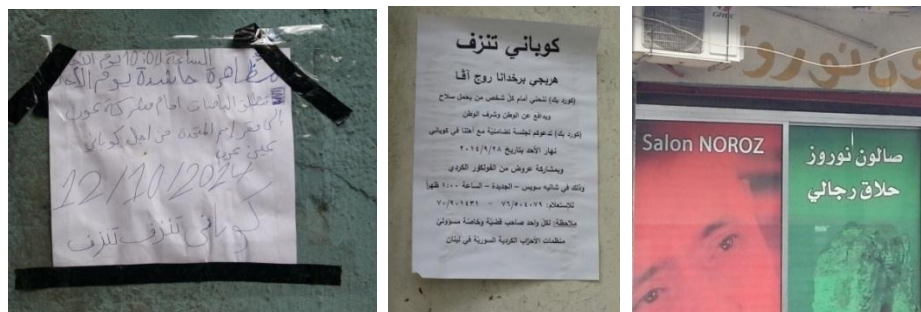 الساعة 10:00 يوم الأحد
مظاهرة حاشدة يوم الأحد
تنطلق الباصات امام
من اجل كوباني
عين عرب
12/10/2014
كوباني تنزف تنزف
كوباني تنزف
هربجي برخدانا روج آفا
(كورد بك) تنحني أمام كلّ شخص من يحمل سلاح
ويدافع عن الوطن وشرف الوطن
(كورد بك) تدعوكم لجلسة تضامنيّة مع أهلنا في كوباني
نهار الأحد بتاريخ ٢٠١٤/٩/٢٨
وبمشاركة عروض من الفولكلور الكردي
وذلك في شاتيه سويس – الجديدة – الساعة ١:٠٠ ظهراً
للإستعلام: ٧٦/٥٠٤٠٧٩ - ٧٠/٩٠٦٤٣١
ملاحظة: لكلّ واحد صاحب قضيّة وخاصّة مسؤوليّ
منظمات الأحزاب الكردية السورية في لبنان
GREE
ون نوروز
Salon NOROZ
صالون نوروز
حلاق رجالي